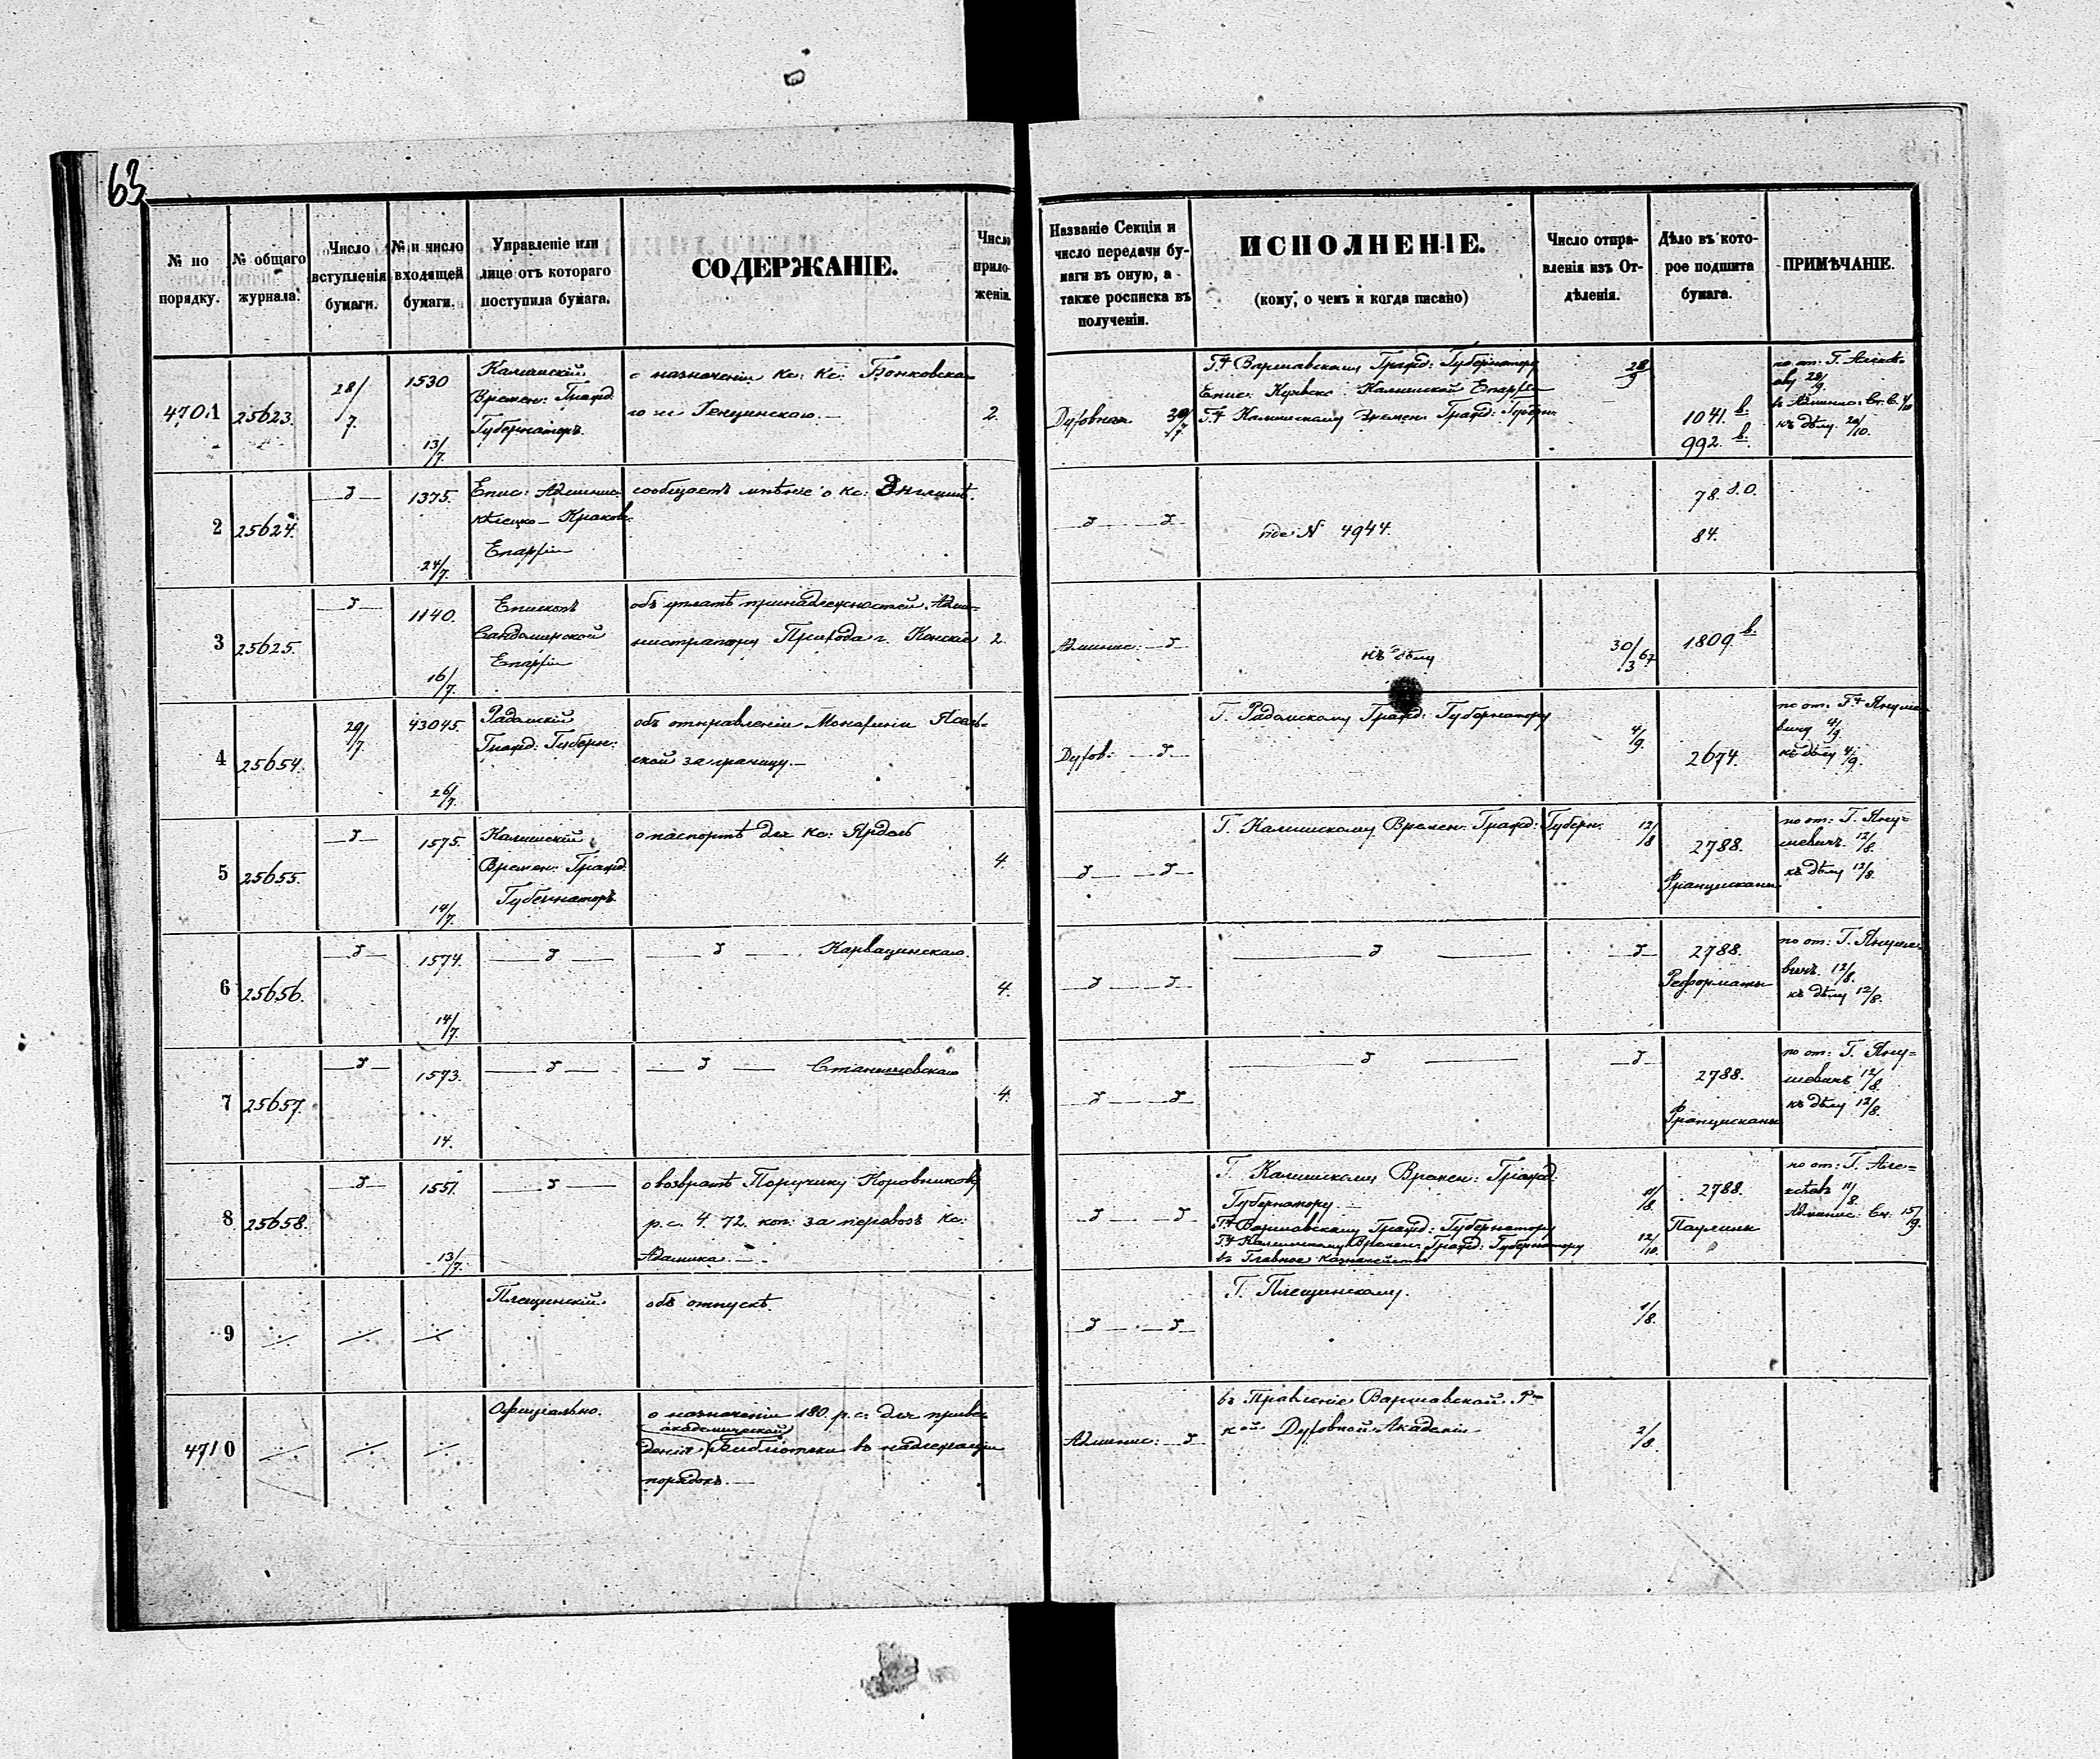 63
№ по порядку.
№ общаго журнала.
Число вступленія бумаги.
№ и число входящей бумаги.
Управленіе или лице отъ котораго поступила бумага.
СОДЕРЖАНІЕ.
Число приложеній.
Названіе Секціи и число передачи бумаги въ оную, а также росписка въ полученіи.
ИСПОЛНЕНІЕ.
(кому, о чемъ и когда писано)
Число отправленія изъ Отдѣленія.
Дѣло въ которое подшита бумага.
ПРИМѢЧАНІЕ.
4701
25623.
28/7
1530
13/7.
Калишскій
Времен: Гражд.
Губернаторъ.
о назначеніи Кс: Кс: Бонковска-
го и Генцинскаго.
2.
Духовная 30/7
Гну Варшавскому Гражд: Губернатору
Епис: Куявско Калишской Епархіи
Гну Калишскому Времен: Гражд: Губерн:
28/9
1041. в.
992. в.
по от: Г.
28/9.
къ дѣлу 20/10.
2
25624.
1375.
24/7.
Епис: Админис:
Кѣлецко-Краков:
Епархіи
сообщаетъ мнѣніе о Кс:
№ 4944.
78. д.о.
84.
3
25625.
1140.
16/7.
Епископъ
Сандомирской
Епархіи
объ уплатѣ принадлежностей Адми-
нистратору Прихода г. Конскіе
2.
Админис:
къ дѣлу
30/3 67
1809 в.
4
25654.
29/7
43045.
26/7.
Радомскій
Гражд: Губерн:
объ отправленіи Монахини
ской за границу.
Духов:
Г. Радомскому Гражд: Губернатору
4/9.
2674.
по от: Гну Януше-
вичу 4/9.
къ дѣлу 4/9.
5
25655.
1575.
14/7.
Калишскій
Времен: Гражд.
Губернаторъ
о паспортѣ для Кс: Ярдель
4.
Г. Калишскому Времен: Гражд: Губерн.
12/8
2788.
Францискане
по от: Г. Яну-
шевичъ. 12/8.
къ дѣлу 12/8.
6
25656.
1574.
14/7.
Карвацинскаго.
4.
2788.
Реформаты
по от: Г. Януше-
вичъ. 12/8.
къ дѣлу 12/8.
7
25657.
1573.
14.
Станишевскаго
4.
2788.
Францискане
по от: Г. Яну-
шевичъ 12/8.
къ дѣлу 12/8.
8
25658.
1551.
13/7.
о возвратѣ Поручику Коровникову
р. с. 4. 72. коп: за перевозъ Кс:
Адамика.
Г. Калишскому Времен: Гражд:
Губернатору
Гну Варшавскому Гражд: Губернатору
Гну Калишскому Времен: Гражд: Губернатору
въ Главное Казначейство
11/8
12/10.
2788.
Паулины
по от: Г.
11/8.
Админис: Сек: 15/9.
9
Плещинскій.
объ отпускѣ.
Г. Плещинскому.
1/8.
4710
Официально.
о назначеніи 180. р. с: для приве-
академической
денія Библіотеки въ надлежащій
порядокъ.
Админис:
въ Правленіе Варшавской Р-
кой Духовной Академіи
2/8.